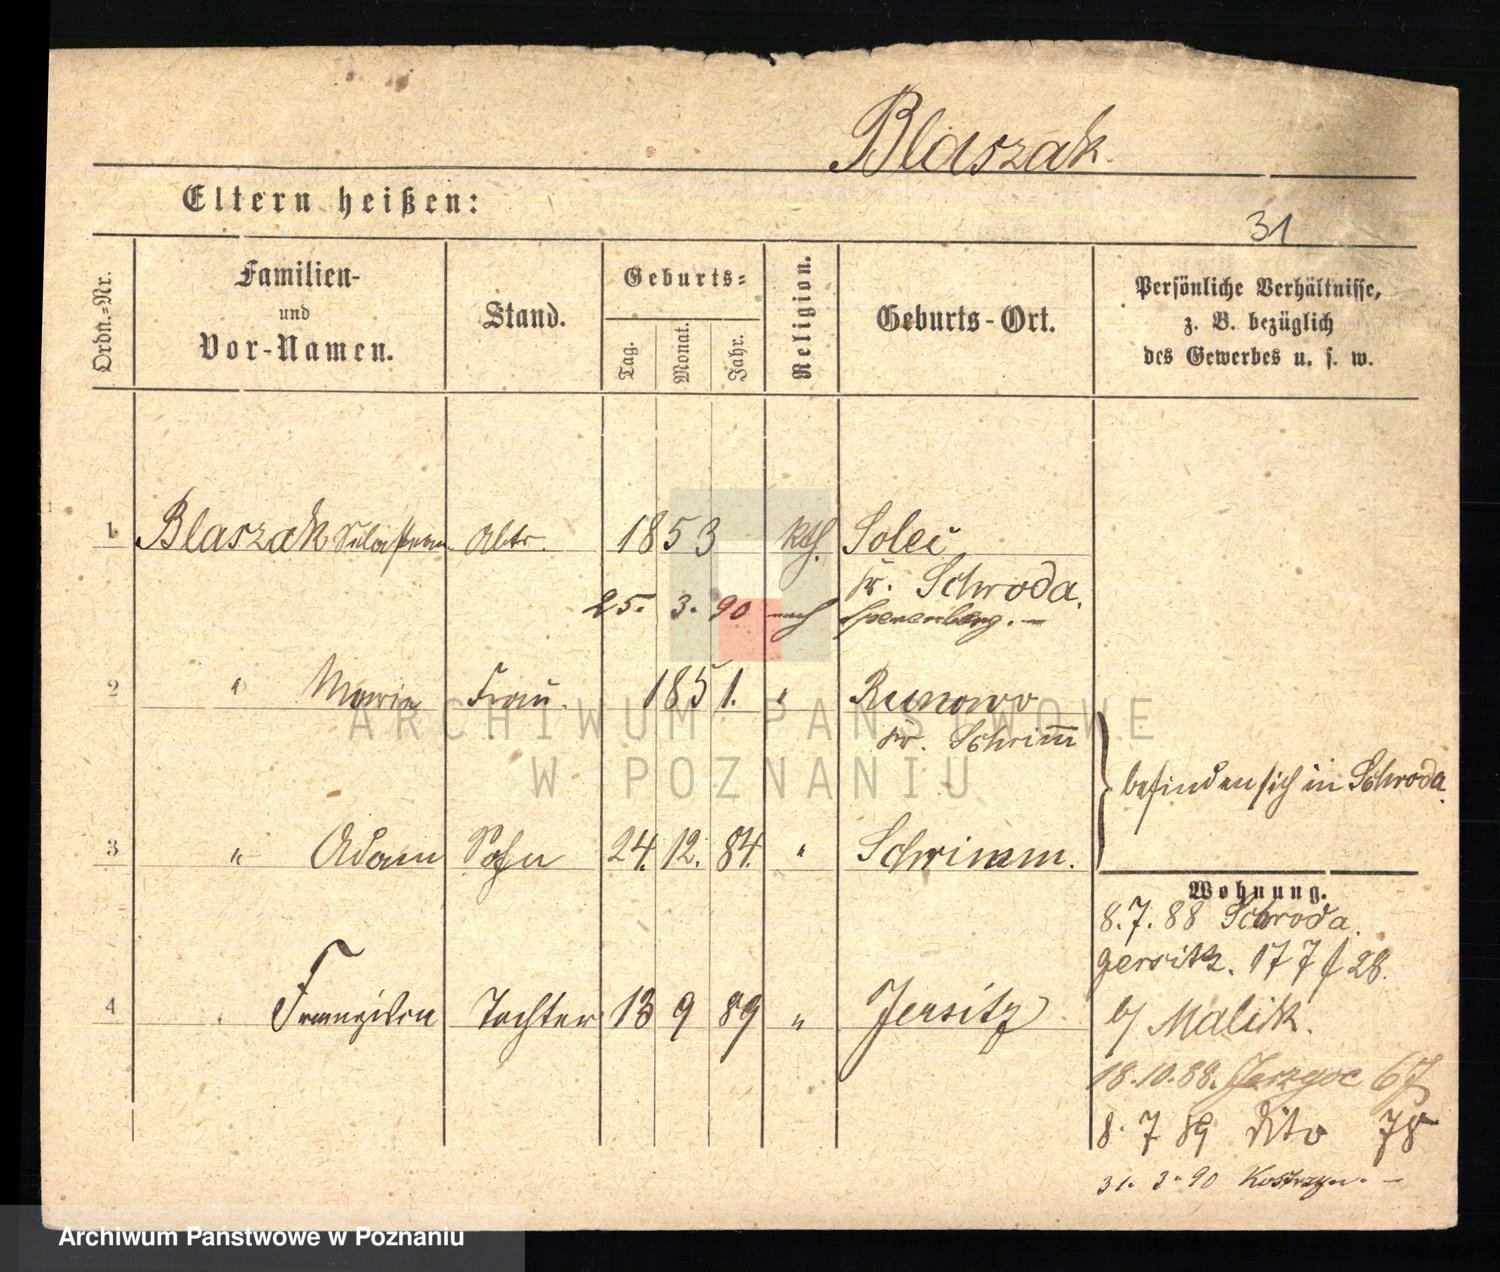 Blaszak.
Eltern heißen:
31
Ordn.-Nr.
Familien-
und
Vor-Namen.
Stand.
Geburts-
Tag.
Monat.
Jahr.
Religion.
Geburts-Ort.
Persönliche Verhältnisse,
z. B. bezüglich
des Gewerbes u. s. w.
1 Blaszak Arbtr. 1853 kth. Solec
kr. Schroda.
25. 3. 90 nach
2 " Marie Frau. 1851. " Runowo
kr. Schrimm
befinden sich in Schroda.
3 " Adam Sohn 24. 12. 84. " Schrimm.
Wohnung.
8. 7. 88 Schroda.
Gersitz. 177 f 28.
4 " Franziska Tochter 13 9 89 " Jersitz
b/ Malik.
18. 10. 88. 67
8. 7 89 dito 78
31. 3. 90 Kostrzyn. -
ARCHIWUM PAŃSTWOWE
W POZNANIU
Archiwum Państwowe w Poznaniu